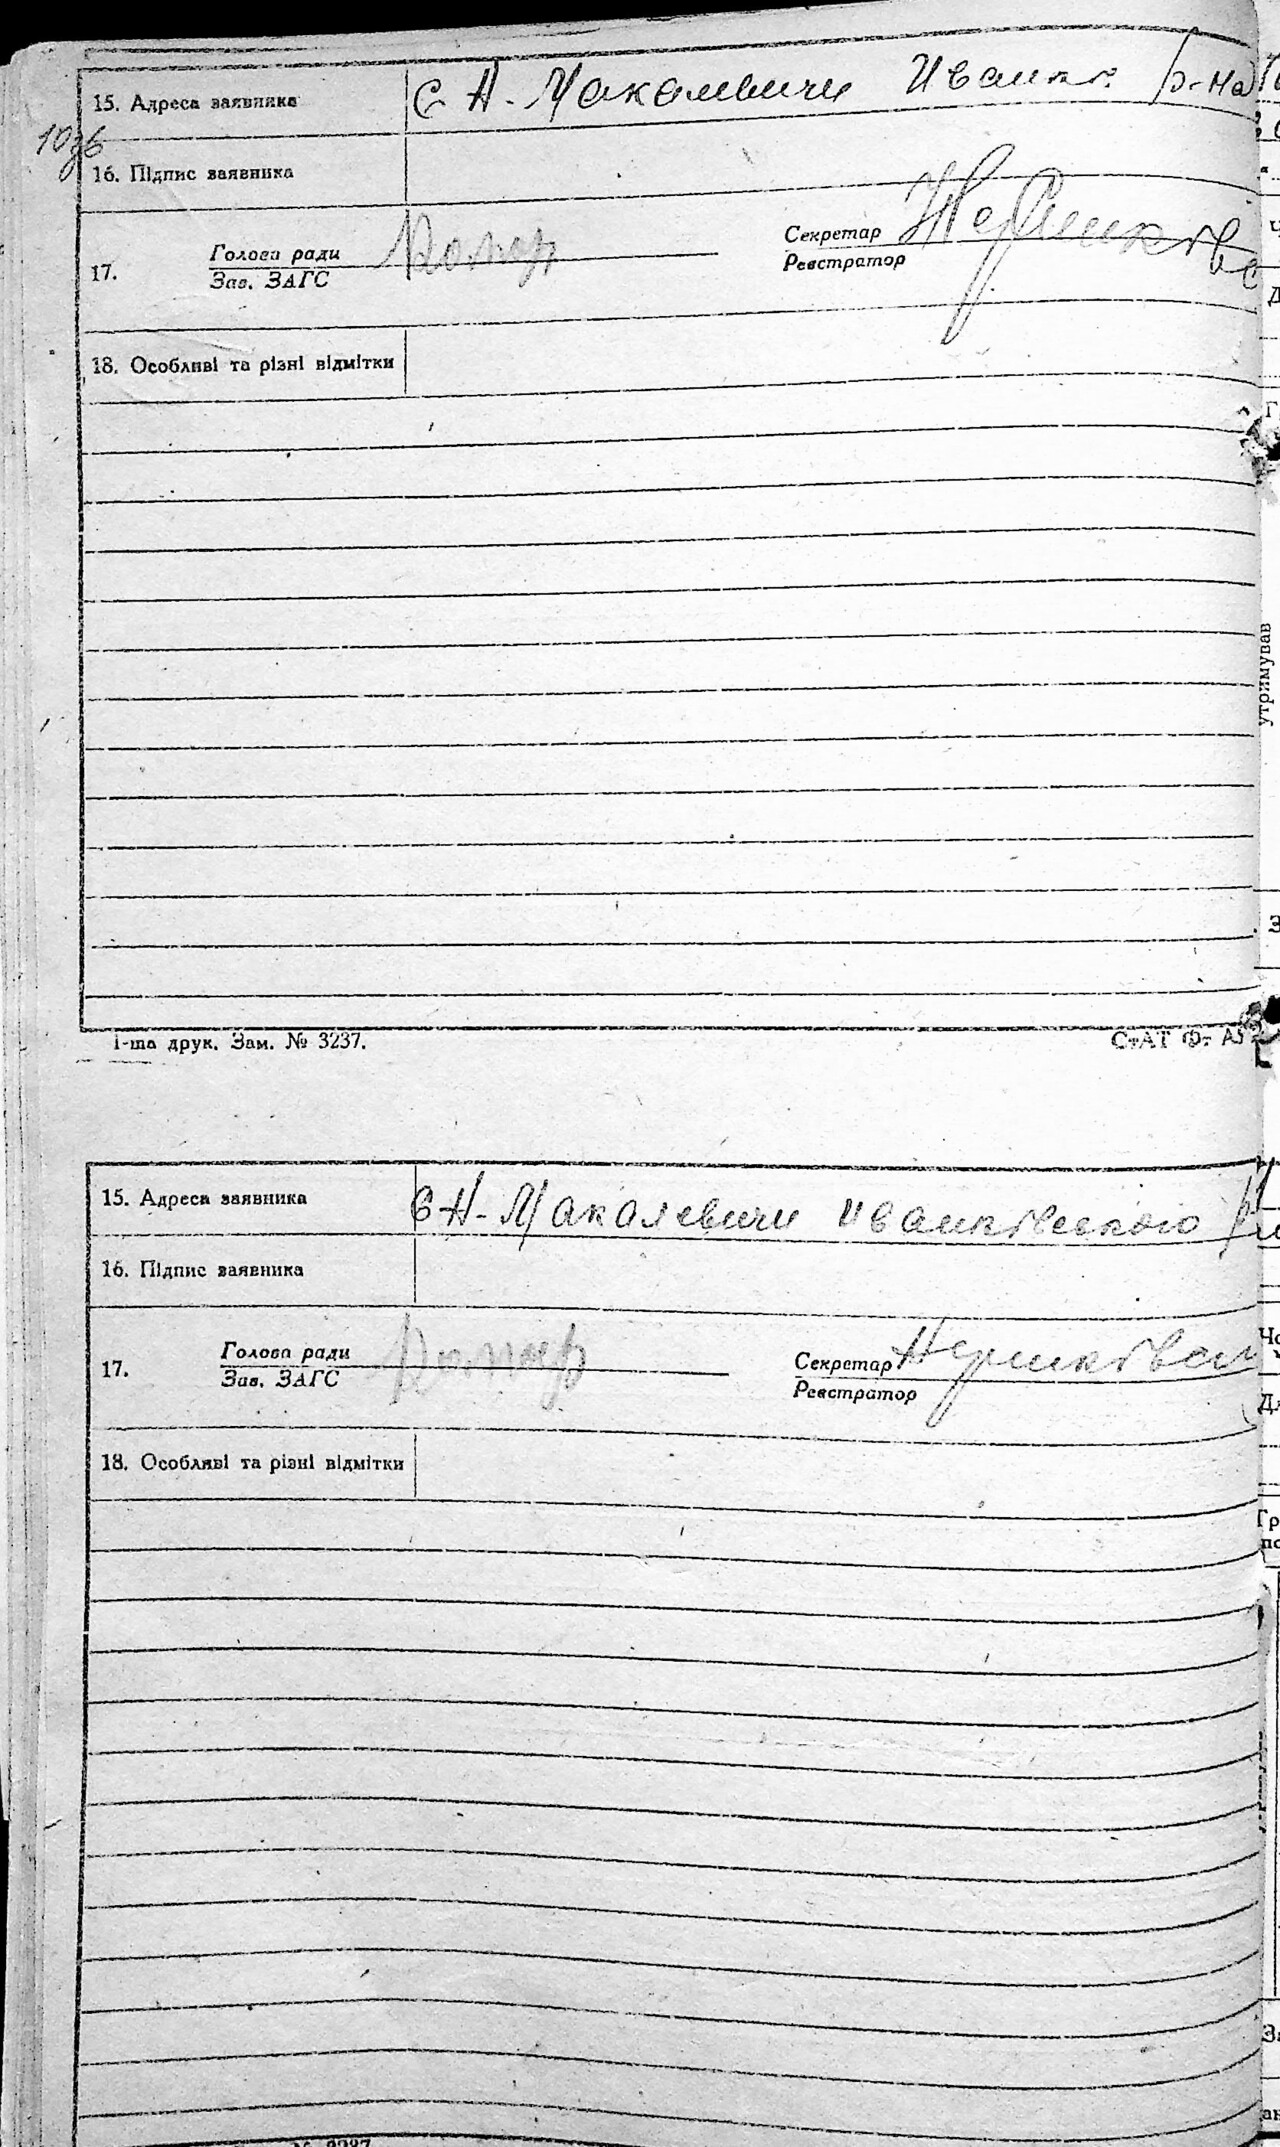 15. Адреса заявника с Н. Макалевичи Иванк. р-на
10зв
16. Підпис заявника
17. Голова ради Секретар
Зав. ЗАГС Реєстратор
18. Особливі та різні відмітки
утримував
1-ша друк. Зам. № 3237.
СтАТ Ф. А5
15. Адреса заявника с Н-Макалевичи Иванківського р
16. Підпис заявника
17. Голова ради Секретар
Зав. ЗАГС Реєстратор
18. Особливі та різні відмітки
№ 3237